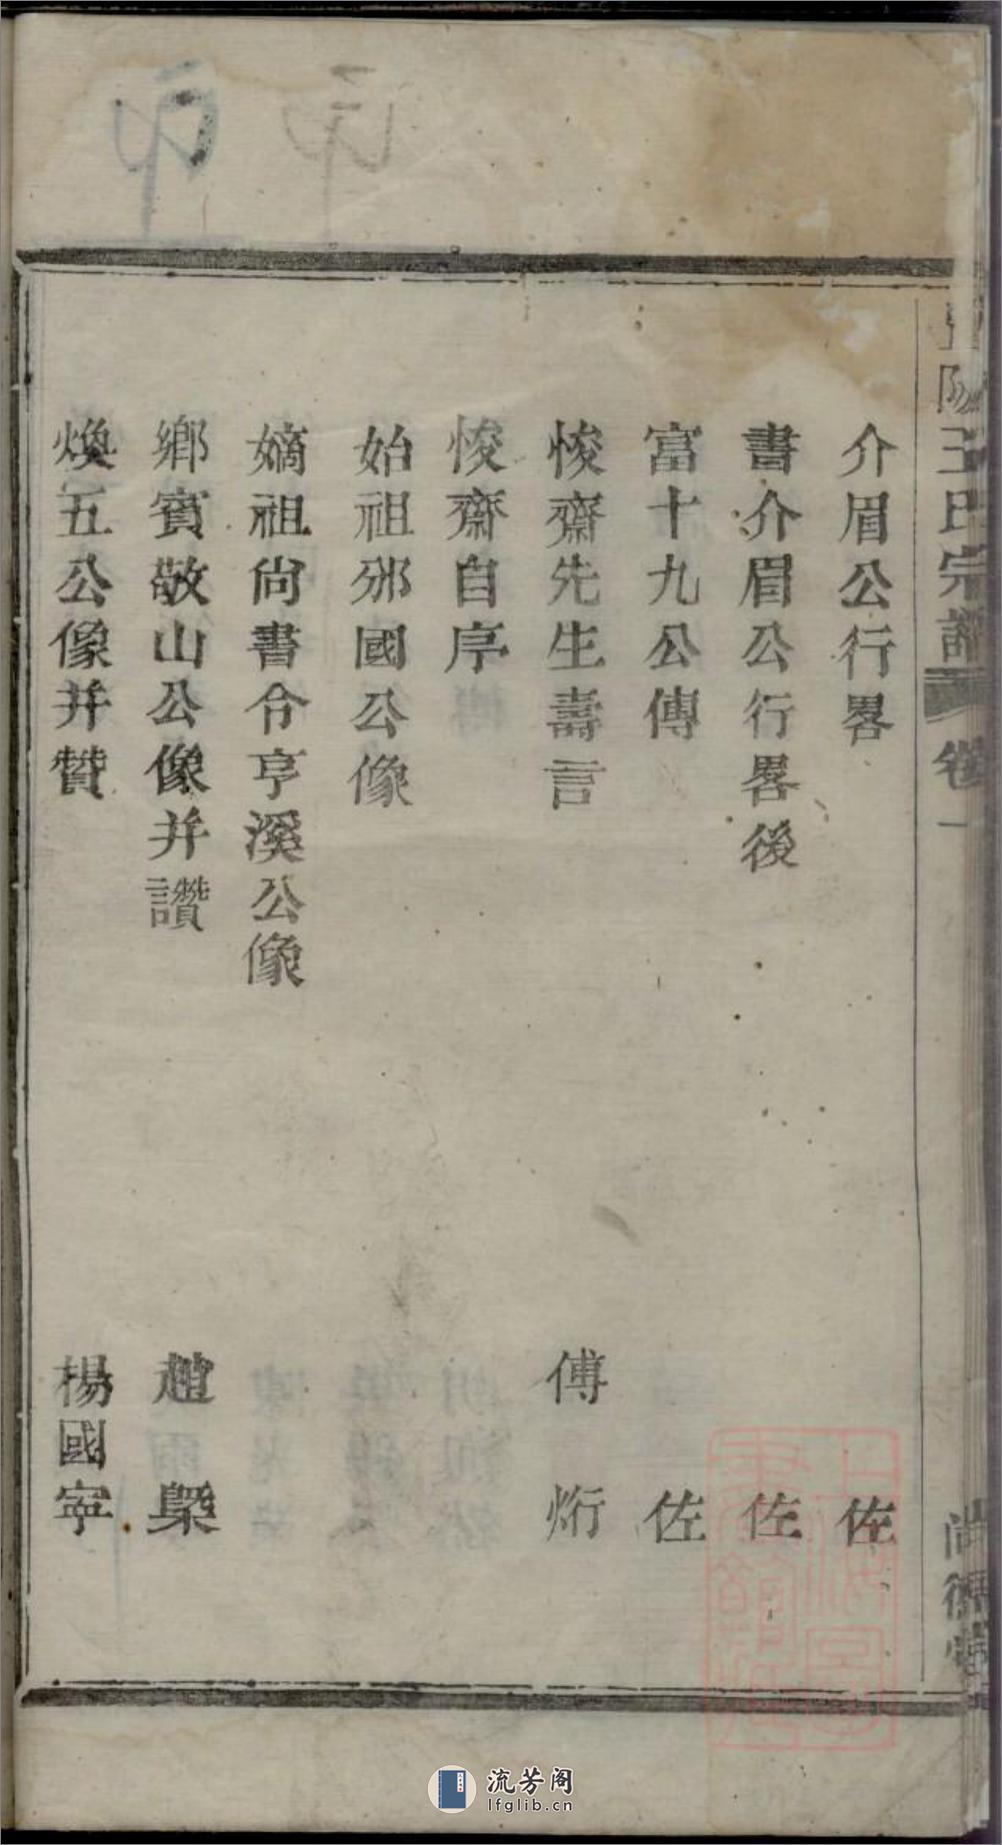 王氏宗譜 卷一
介眉公行畧 佐
書介眉公行畧後 佐
富十九公傳 佐
悛齋先生壽言 傅 烆
悛齋自序
始祖邠國公像
嫡祖尙書令亨溪公像
鄉賓敬山公像并讚 趙 㮣
煥五公像并贊 楊國寧
流芳阁
lfglib.cn